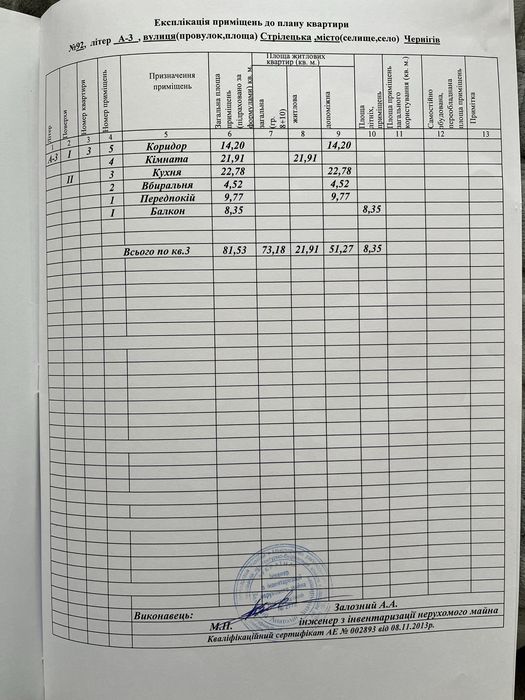 Експлікація приміщень до плану квартири
№92, літер А-3, вулиця(провулок,площа) Стрілецька ,місто(селище,село) Чернігів
Літер
Поверхи
Номер квартири
Номер приміщень
Призначення приміщень
Загальна площа приміщень (підраховано за формулами) кв. м.
Площа житлових квартир (кв. м.)
загальна (гр. 8+10)
житлова
допоміжна
Площа літніх, приміщень
Площа приміщень загального користування (кв. м.)
Самостійно збудована, переобладнана площа приміщень
Примітка
2 3 4 5 6 7 8 9 10 11 12 13
А-3 I 3 5 Коридор 14,20 14,20
4 Кімната 21,91 21,91
II 3 Кухня 22,78 22,78
2 Вбиральня 4,52 4,52
1 Передпокій 9,77 9,77
I Балкон 8,35 8,35
Всього по кв.3 81,53 73,18 21,91 51,27 8,35
Виконавець: Залозний А.А.
М.П. інженер з інвентаризації нерухомого майна
Кваліфікаційний сертифікат АЕ № 002893 від 08.11.2013р.